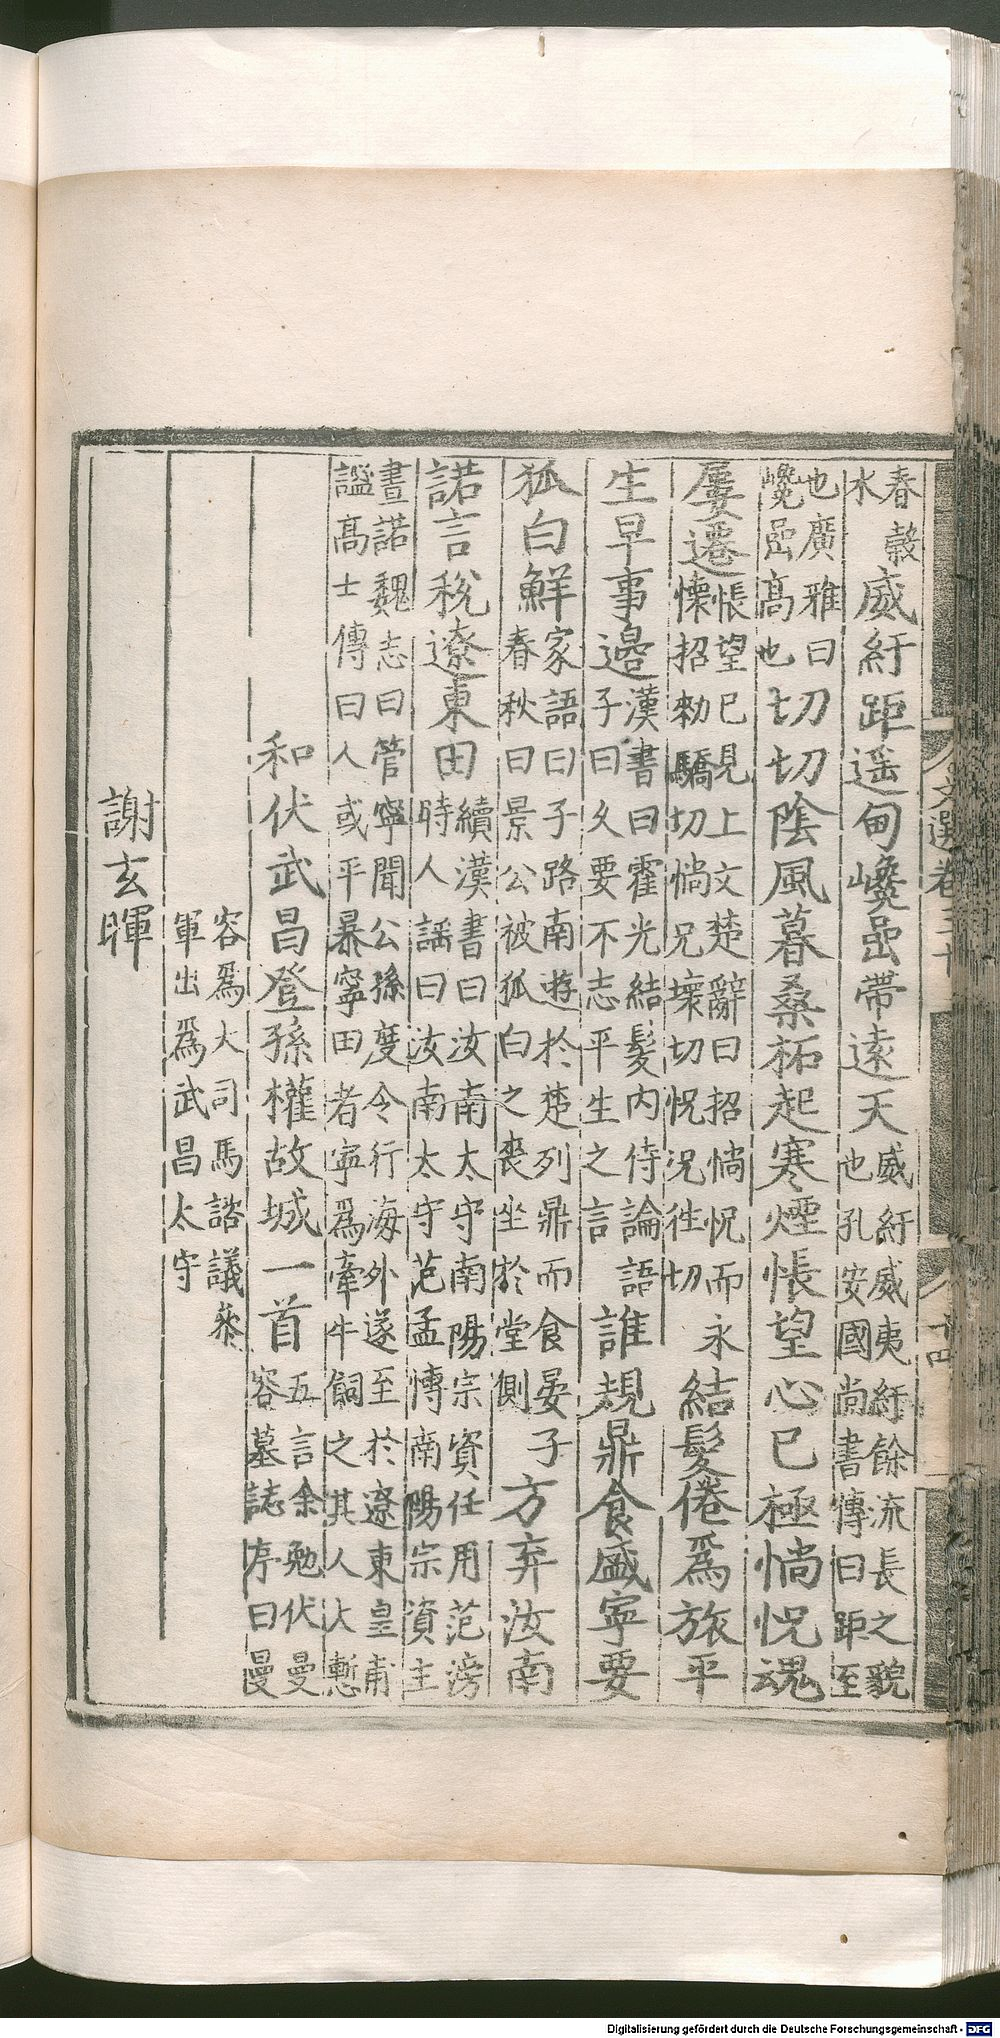 文選卷三十
十四
春穀水威紆距遥甸巉嵒帶遠天威紆威夷紆餘流長之貌也孔安國尚書傳曰距至
也廣雅曰巉嵒髙也切切陰風暮桑柘起寒煙悵望心已極惝怳魂
屢遷悵望已見上文楚辭曰招惝怳而永懐招勑驕切惝兄壞切怳況徃切結髮倦爲旅平
生早事邉漢書曰霍光結髮内侍論語子曰久要不志平生之言誰規鼎食盛寧要
狐白鮮家語曰子路南遊於楚列鼎而食晏子春秋曰景公被狐白之裘坐於堂側方弃汝南
諾言稅遼東田續漢書曰汝南太守南陽宗資任用范滂時人謡曰汝南太守范孟博南陽宗資主
畫諾魏志曰管寧聞公孫度令行海外遂至於遼東皇甫謐髙士傳曰人或平暴寧田者寧爲牽牛飼之其人大慙
和伏武昌登孫權故城一首五言余勉伏曼容墓誌序曰曼
容爲大司馬諮議叅軍出爲武昌太守
謝玄暉
Digitalisierung gefördert durch die Deutsche Forschungsgemeinschaft - DFG